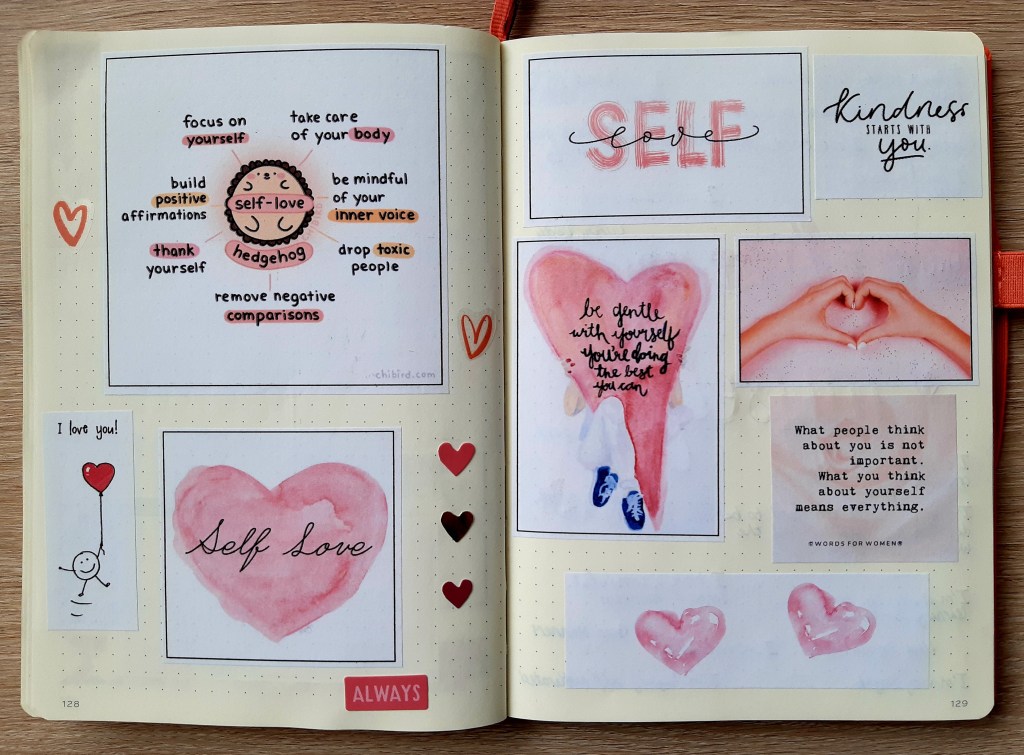 focus on
yourself
take care
of your body
build
positive
affirmations
self-love
be mindful
of your
inner voice
thank
yourself
hedgehog
drop toxic
people
remove negative
comparisons
chibird.com
I love you!
Self Love
ALWAYS
128
SELF
love
Kindness
STARTS WITH
you.
be gentle
with yourself
you're doing
the best
you can
What people think
about you is not
important.
What you think
about yourself
means everything.
©WORDS FOR WOMEN®
129